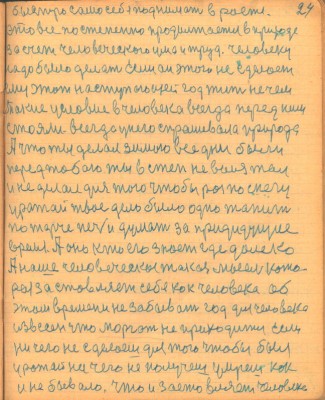 24
быстро само себя поднимат в росте.
это все постепенно продолжается в природе
за счет человеческого ума и труда. человеку
надо было делать если он этого не сделает
ему этот наступающей год жить не чем
такие условие в человека всегда перед ним
стояли всегда у него спрашивала природа
А что ты делал зимою все дни были
перед тобою ты в степ не
и не делал для того чтобы по снегу
урожай твое дело было одно топить
по жарче печ и думат за предидущие
время. А оно кто его знает где далеко
А наше человеческое такая мысел кото-
рая заставляет себя как человека об
этом времени не забыват год для человека
известен что может не приходити если
ни чего не сделаеш для того чтобы был
урожай на чего не получеш умреш как
и не бывало. что и заставляет человека